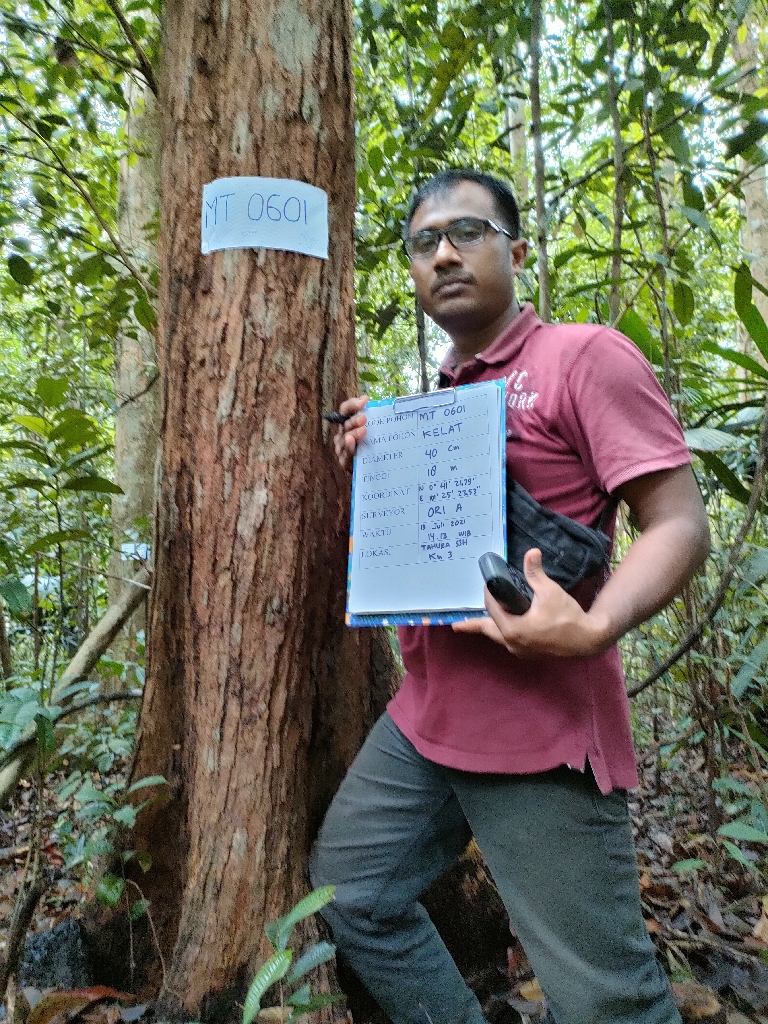 MT 0601
KODE POHON MT 0601
NAMA POHON KELAT
DIAMETER 40 Cm
TINGGI 18 m
KOORDINAT N 0° 41' 21,79"
E 25' 23,52"
SURVEYOR ORI A
WAKTU 13 Juli 2021
14.13 WIB
LOKASI TAHURA SSH
Km 3